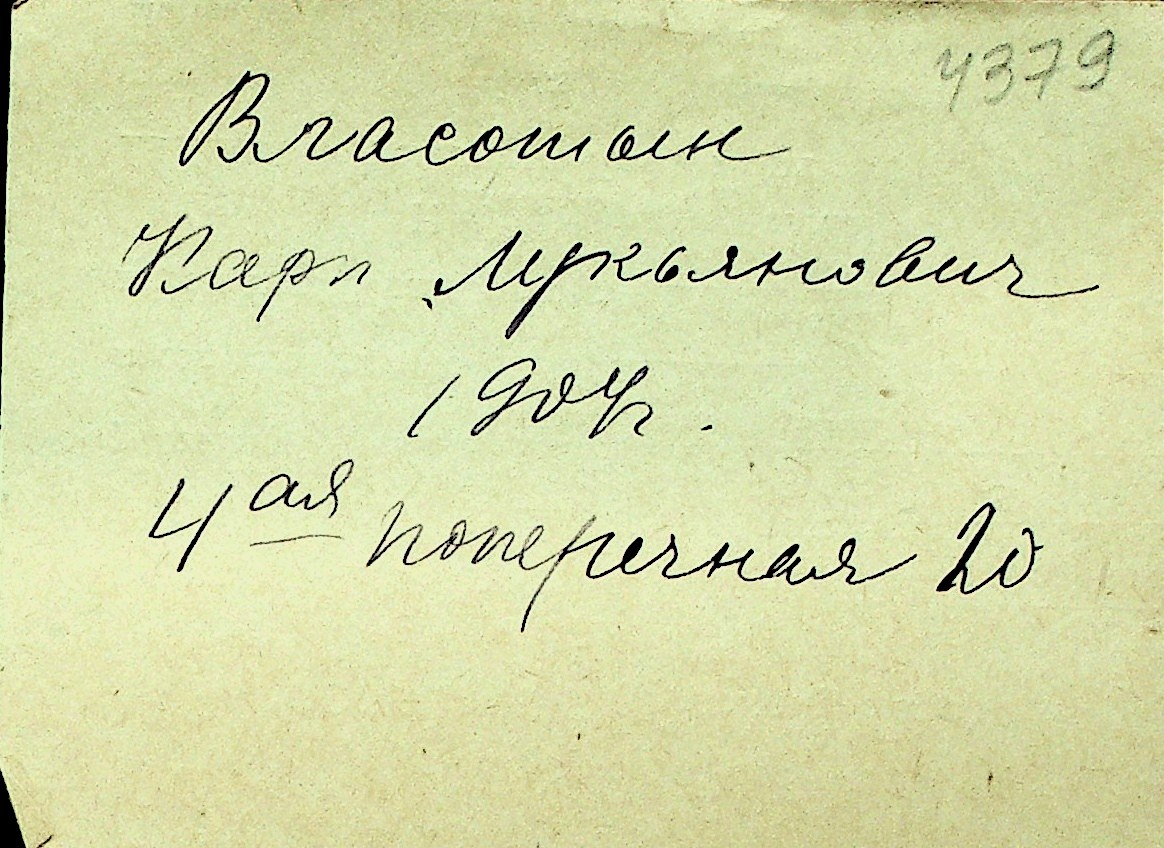 4379
Власотын
Карл Лукьянович
1904г.
4ая поперечная 20